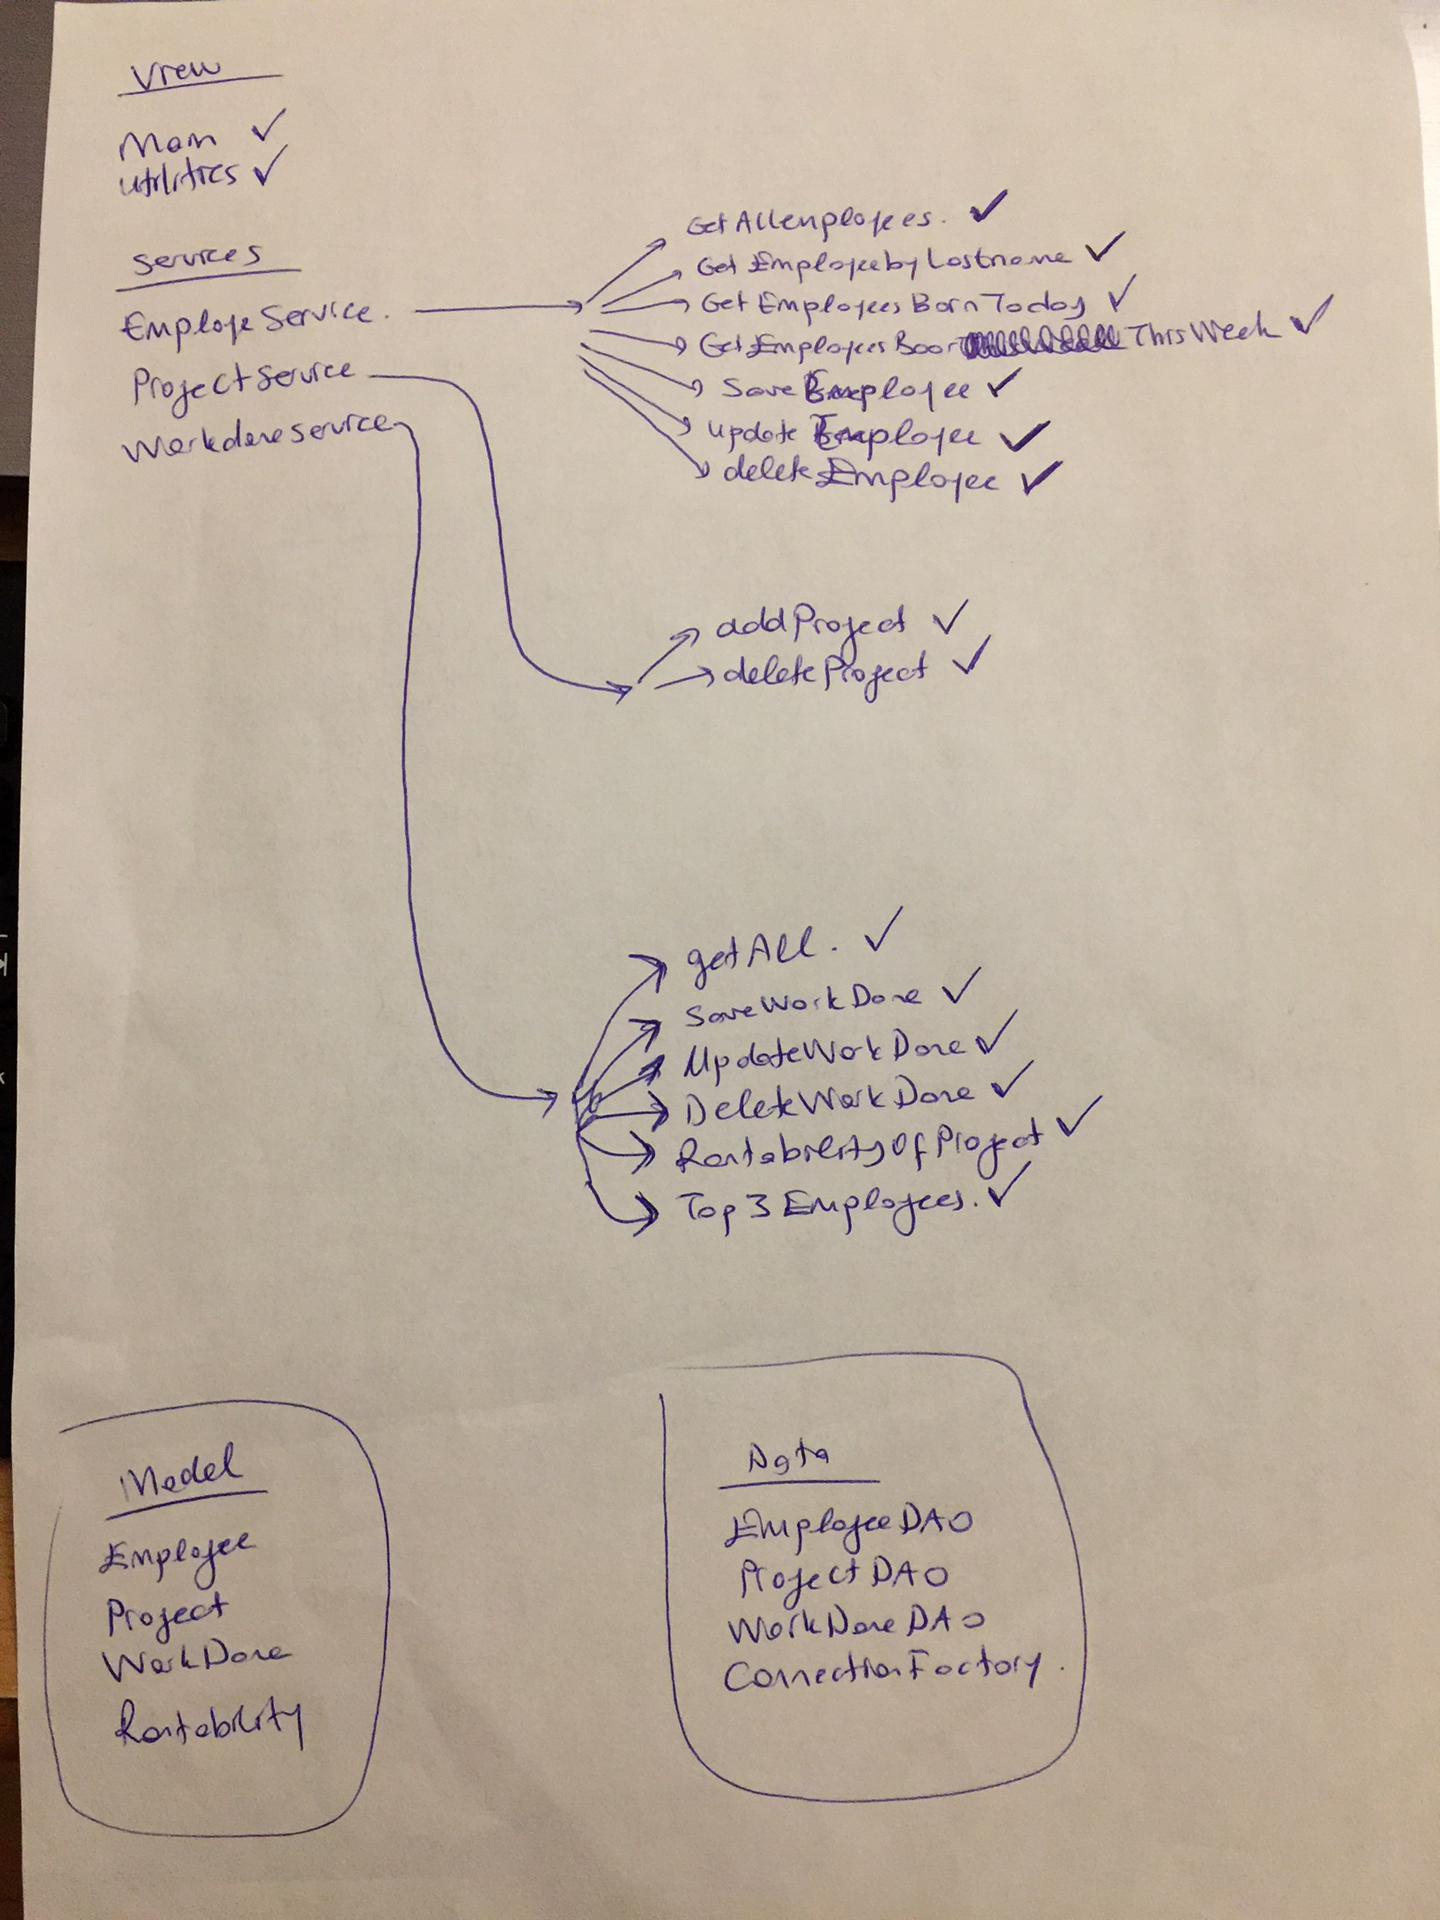 View
Main ✓
Utilities ✓
Services
EmployeService.
ProjectService
WorkdoneService
Get Allemployees. ✓
Get EmployeebyLastname ✓
Get Employees Born Today ✓
Get Employees Boor ThisWeek ✓
Save Employee ✓
update Employee ✓
delete Employee ✓
addProject ✓
deleteProject ✓
getAll. ✓
SaveWorkDone ✓
UpdateWorkDone ✓
DeleteWorkDone ✓
RentabilityOfProject ✓
Top 3 Employees. ✓
Model
Employee
Project
WorkDone
Rentability
Data
EmployeeDAO
ProjectDAO
WorkDoneDAO
ConnectionFactory.